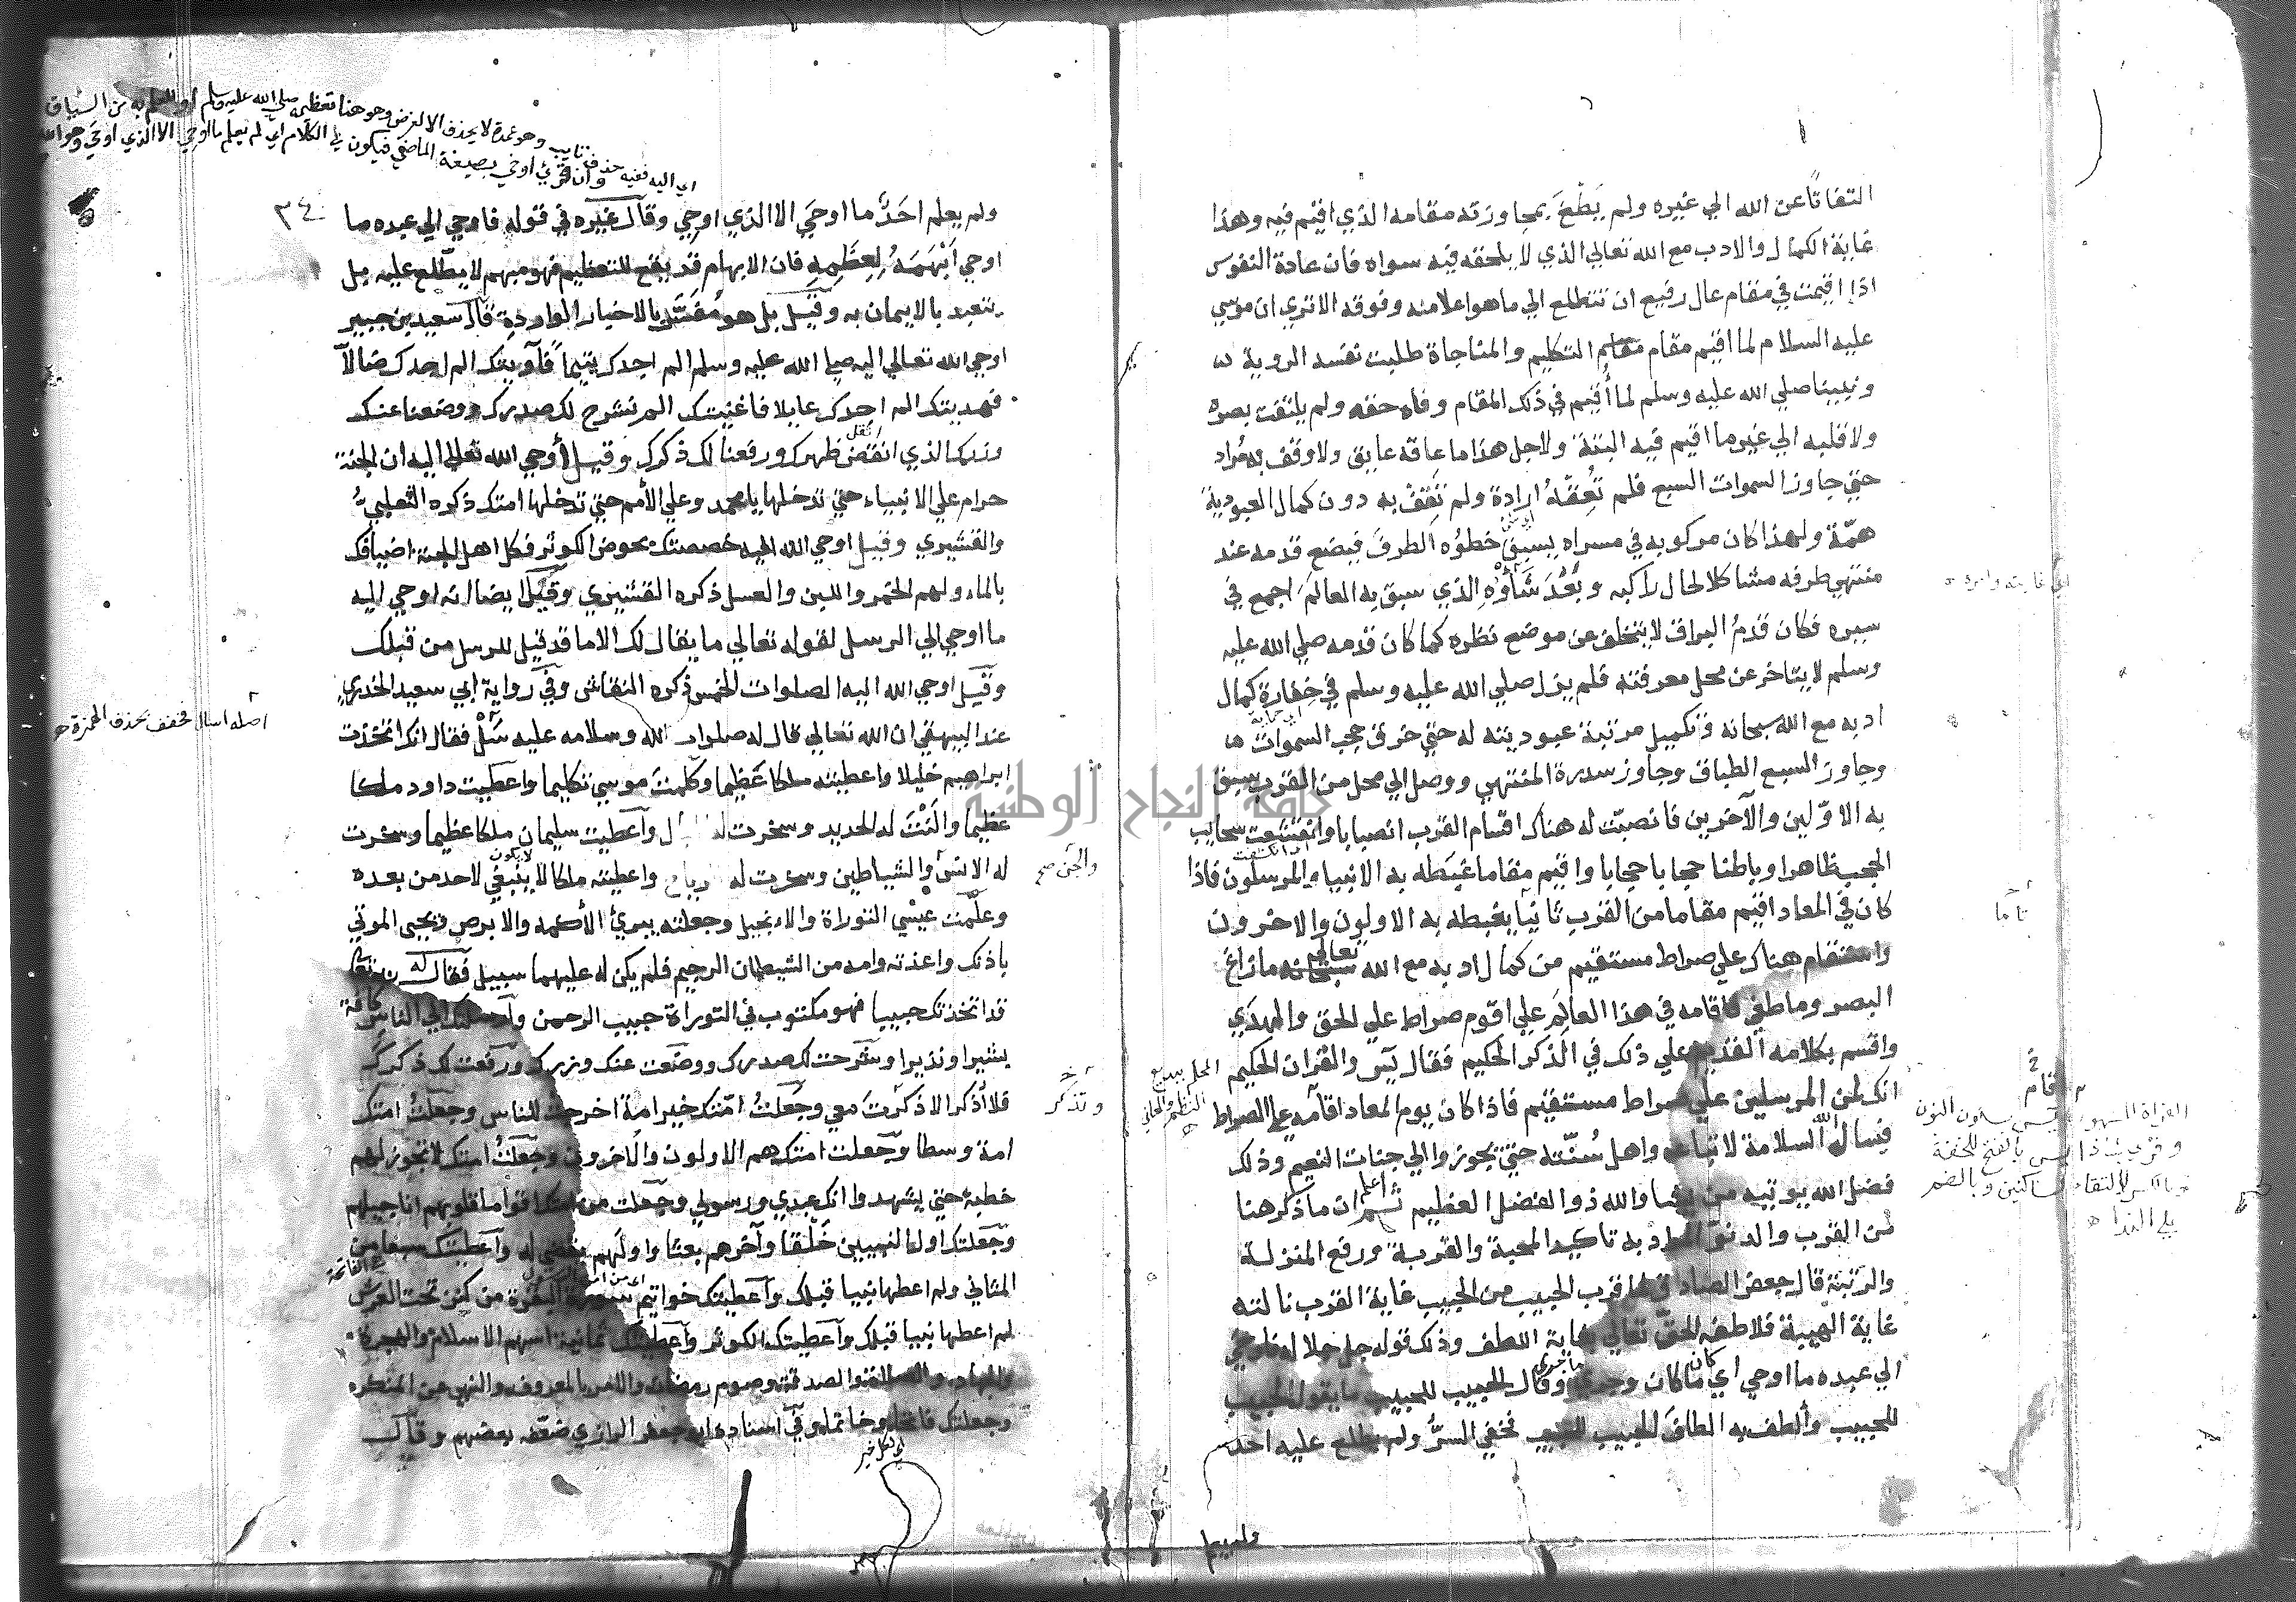 التفاتًا عن الله الي غيره ولم يَطْغَ بمجاوزته مقامه الذي اقيم فيه وهذا
غاية الكمال والادب مع الله تعالي الذي لا يلحقه فيه سواه فان عادة النفوس
اذا اقيمت في مقام عال رفيع ان تتطلع الي ما هو اعلا منه وفوقه الا تري ان موسي
عليه السلام لما اقيم مقام التكليم والمناجاة طلبت نفسه الروية
ونبينا صلي الله عليه وسلم لما أقيم في ذلك المقام وفاه حقه ولم يلتفت بصره
ولا قلبه الي غير ما اقيم فيه البتة ولاجل هذا ما عاقه عايق ولا وقف به مُراد
حتي جاوز السموات السبع فلم تُعِقْهُ ارادة ولم تَقِفْ به دون كمال العبودية
همّة ولهذا كان مركوبه في مسراه يسبق خطوُه الطرفَ فيضع قدمه عند
منتهي طرفه مشاكلا لحال راكبه وبُعْدَ شَأْوِهِ الذي سبق به العالمَ اجمع في
سيره فكان قدمُ البراق لا يتخلف عن موضع نظره كما كان قدمه صلي الله عليه
وسلم لا يتاخر عن محل معرفته فلم يزل صلي الله عليه وسلم في خِفارة كمال
ادبه مع الله سبحانه وتكميل مرتبة عبوديته له حتي خرق حجب السموات
وجاوز السبع الطباق وجاوز سدرة المنتهي ووصل الي محل من القرب سبق
به الاوّلين والآخرين فانصبّت له هناك اقسام القرب انصبابا وانقشعت سحايب
الحجب ظاهرا وباطنا حجابا حجابا واقيم مقاما غبَطه به الانبيا والمرسلون فاذا
كان في المعاد اقيم مقاما من القرب ثانيا يغبطه به الاولون والاخرون
واستقام هناك علي صراط مستقيم من كمال ادبه مع الله تعالي ما زاغ
البصر وما طغي فاقامه في هذا العالَم علي اقوم صراط علي الحق والهدَي
واقسم بكلامه القديم علي ذلك في الذكر الحكيم فقال يس والقران الحكيم
انك لمن المرسلين علي صراط مستقيم فاذا كان يوم المعاد اقامه علي الصراط
فيسال الله السلامة لاتباعه واهل سُنّته حتي يجوزوا الي جنات النعيم وذلك
فضل الله يوتيه من يشا والله ذو الفضل العظيم ثم اعلم ان ما ذكر هنا
من القرب والدنوّ المراد به تاكيد المحبة والقربة ورفع المنزلة
والرتبة قال جعفر الصادق لما قرب الحبيب من الحبيب غاية القرب نالته
غاية الهيبة فلاطفه الحقّ تعالي بغاية اللطف وذلك قوله جل جلاله فاوحي
الي عبده ما اوحي اي كان ما كان وجري ما جري وقال الحبيب للحبيب ما يقول الحبيب
للحبيب وألطف به الطافَ الحبيب للحبيب فخفي السرُّ ولم يطلع عليه احد
ولم يعلم
اي غايته وامده
تاما
القراة المشهورة يس بسكون النون
وقرئ شاذا يس بالفتح للخفة
وبالكسر لالتقاء الساكنين وبالضم
علي الندا
٣٤
ولم يعلم احَدٌ ما اوحَي الا الذي اوحي وقال غيره في قوله فاوحي الي عبده ما
اوحي اَبْهَمَهُ لِعِظَمِهِ فان الابهام قد يقع للتعظيم فهو مبهم لا يطّلع عليه بل
يتعبد بالايمان به وقيل بل هو مُفَسَّر بالاخبار الواردة قال سعيد بن جبير
اوحي الله تعالي اليه صلي الله عليه وسلم الم اجدك يتيماً فآويتك الم اجدك ضالاّ
فهديتك الم اجدك عايلا فاغنيتك الم نشرح لك صدرك ووضعنا عنك
وزرك الذي انقض ظهرك ورفعنا لك ذكرك وقيل أوحي الله تعالي اليه ان الجنة
حرام علي الانبياء حتي تدخلها يا محمد وعلي الأمم حتي تدخلها امتك ذكره الثعلبيُّ
والقشيري وقيل اوحي الله اليه خصصتك بحوض الكوثر فكل اهل الجنة اضيافك
بالماء ولهم الخمر واللبن والعسل ذكره القشيري وقيل ايضا انه اوحي اليه
ما اوحي الي الرسل لقوله تعالي ما يقال لك الا ما قد قيل للرسل من قبلك
وقيل اوحي الله اليه الصلوات الخمس ذكره النقاش وفي رواية ابي سعيد الخدري
عند البيهقي ان الله تعالي قال له صلوات الله وسلامه عليه سَلْ فقال انك اتخذت
ابراهيم خليلا واعطيته ملكا عَظِيما وكلمت موسي تكليما واعطيت داود ملكا
عظيما واَلَنْتَ له الحديد وسخرت له الجبال وأعطيت سليمان ملكا عظيما وسخرت
له الانس والشياطين وسخرت له الرياح واعطيته ملكا لا ينبغي لاحد من بعده
وعلّمت عيسي التوراة والانجيل وجعلته يبرئ الأكمه والابرص ويحيي الموتي
باذنك واعذته وامه من الشيطان الرجيم فلم يكن له عليهما سبيل فقال له
قد اتخذتك حبيبا فهو مكتوب في التوراة حبيب الرحمن وأرسلتك الي الناس كافة
بشيرا ونذيرا وشرحت لك صدرك ووضعت عنك وزرك ورفعت لك ذكرك
فلا أذكر الا ذكرتَ معي وجعلتُ امّتك خير امة اخرجت للناس وجعلتُ امتك
امة وسطا وجعلت امتك هم الاولون والآخرون وجعلت امتك لا تجوز لهم
خطبة حتي يشهدوا انك عبدي ورسولي وجعلت من امتك اقواما قلوبهم اناجيلهم
وجعلتك اول النبيين خَلْقا وآخرهم بعثا واولهم يقضي له وأعطيتك سبعا من
المثاني ولم اعطها نبيا قبلك وأعطيتك خواتيم سورة البقرة من كنز تحت العرش
لم اعطها نبيا قبلك وأعطيتك الكوثر وأعطيتك ثمانية اسهم الاسلام والهجرة
والجهاد والصلاة والصدقة وصوم رمضان والامر بالمعروف والنهي عن المنكر
وجعلتك فاتحا وخاتما وفي اسناده ابو جعفر الرازي ضعّفه بعضهم وقال
اصله اسال فخفف بحذف الهمزة
والجن صح
جامعة النجاح الوطنية